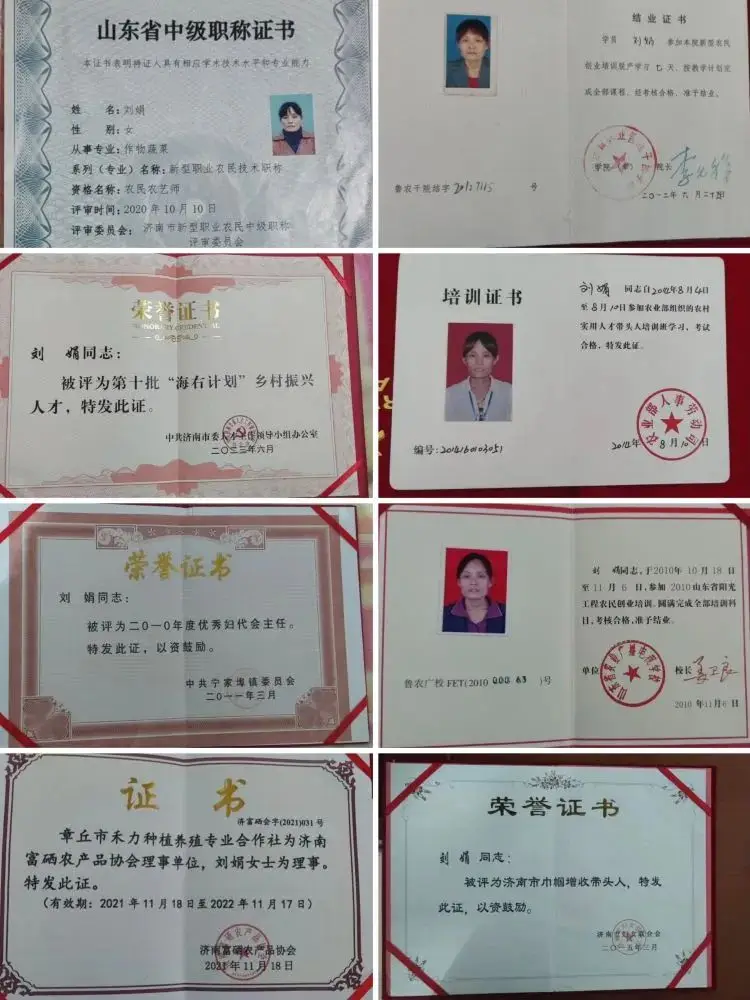 山东省中级职称证书
本证书表明持证人具有相应学术技术水平和专业能力
姓 名：刘娟
性 别：女
从事专业：作物蔬菜
系列（专业）名称：新型职业农民技术职称
资格名称：农民农艺师
评审时间：2020年10月10日
评审委员会：济南市新型职业农民中级职称
评审委员会
结业证书
学员 刘娟 参加本院新型农民
创业培训脱产学习七天、按教学计划完
成全部课程，经考核合格，准予结业。
学院（章） 院长
鲁农干院结字 20127115 号
二〇一二年六月二十四日
荣誉证书
HONORARY CREDENTIAL
刘 娟同志：
被评为第十批“海右计划”乡村振兴
人才，特发此证。
中共济南市委人才工作领导小组办公室
二〇二三年六月
培训证书
刘娟 同志自2014年8月4日
至8月10日参加农业部组织的农村
实用人才带头人培训班学习，考试
合格，特发此证。
农业部人事劳动司
2014年8月10日
编号：2014160103051
荣誉证书
刘 娟同志：
被评为二0一0年度优秀妇代会主任。
特发此证，以资鼓励。
中共宁家埠镇委员会
二〇一一年三月
刘 娟同志，于2010年10月18日
至11月6日，参加2010山东省阳光
工程农民创业培训。圆满完成全部培训科
目，考核合格，准予结业。
单位 校长
山东省农业广播电视学校
鲁农广校FET(2010 00063)号
2010年11月6日
证书
济富硒会字(2021)031号
章丘市禾力种植养殖专业合作社为济南
富硒农产品协会理事单位，刘娟女士为理事。
特发此证。
（有效期：2021年11月18日至2022年11月17日）
济南富硒农产品协会
2021年11月18日
荣誉证书
刘 娟 同志：
被评为济南市巾帼增收带头人，特发
此证，以资鼓励。
济南市妇女联合会
二〇一五年三月